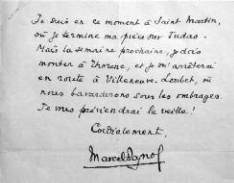 Je suis en ce moment à Saint Martin,
où je termine ma pièce sur Judas.
Mais la semaine prochaine, je dois
monter à Thorenc, et je m'arrêterai
en route à Villeneuve-Loubet, où
nous bavarderons sous les ombrages.
Je vous préviendrai la veille!
Cordialement,
Marcel Pagnol